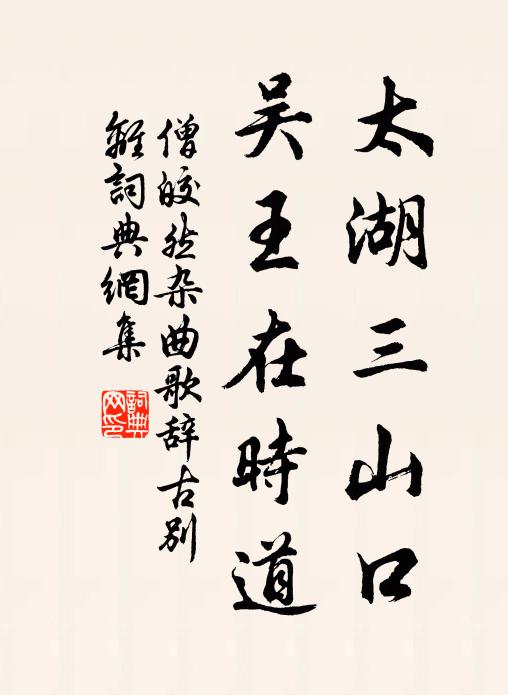 太湖三山口
吳王在時道
僧皎然杂曲歌辞古别
離詞典網集
詞典网印